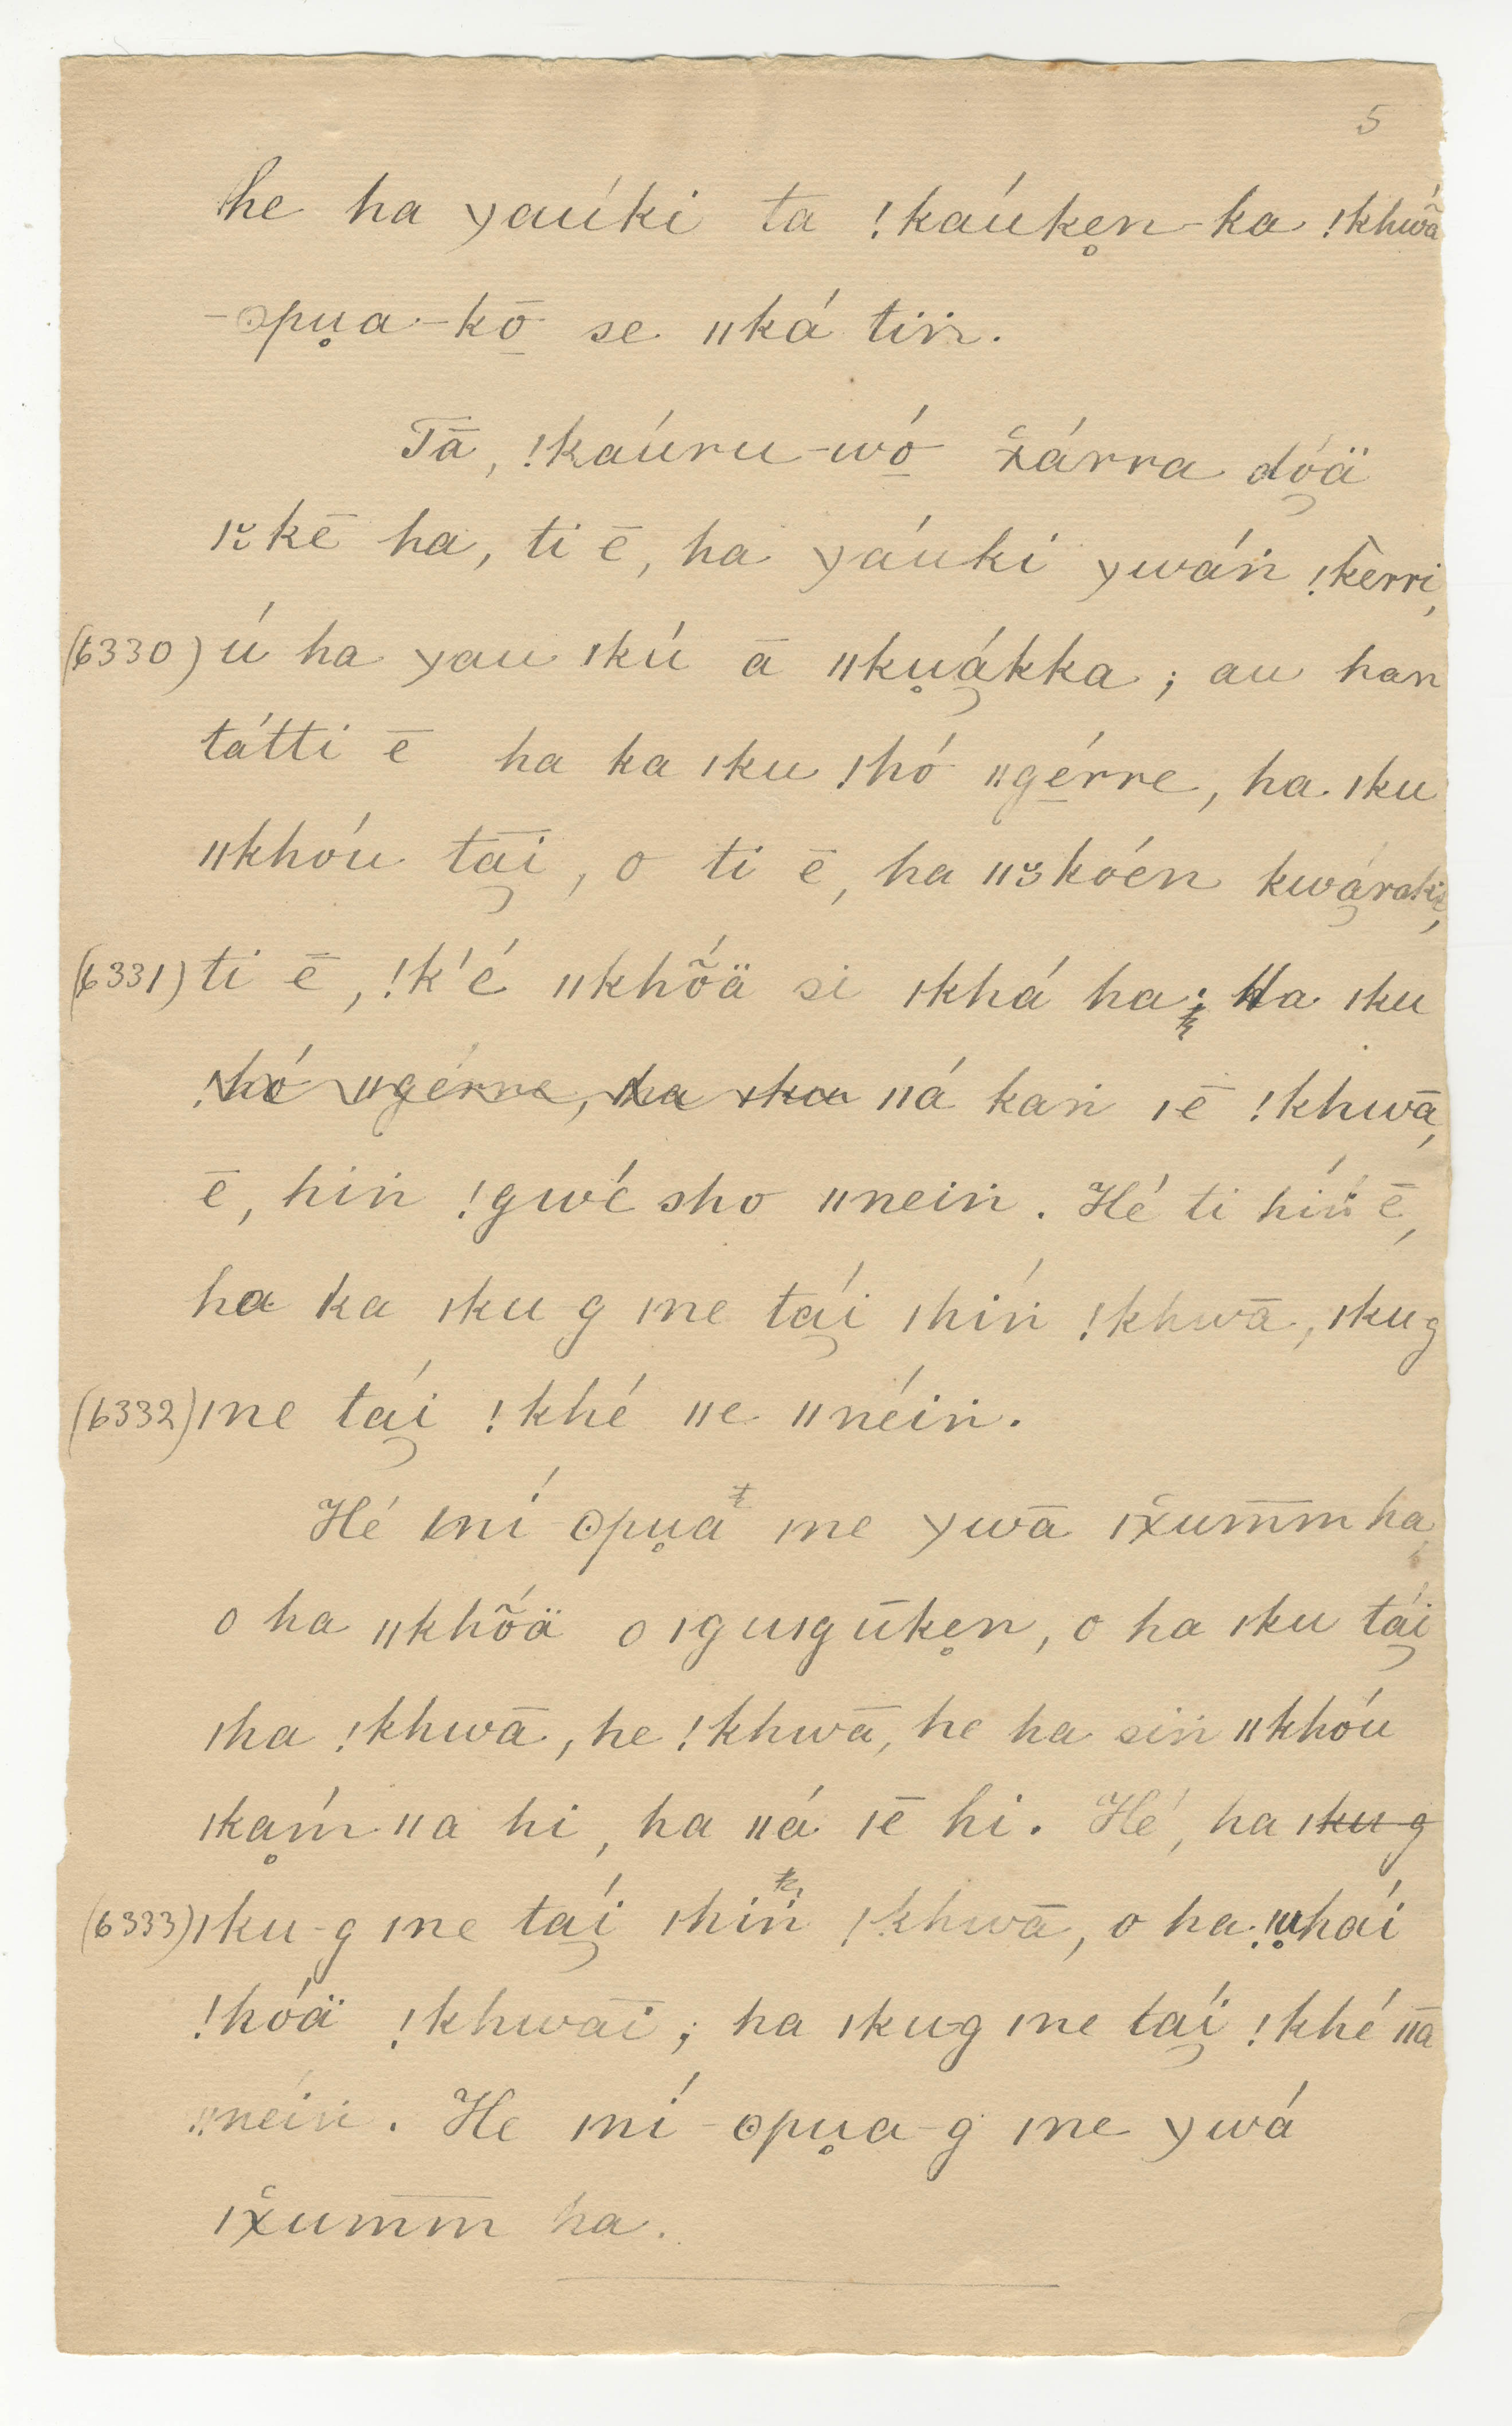 5
he ha yaúki ta !kaúkẹn-ka !khwã́
-ʘpụa-kō̱ se ǁká tiṅ.
Tā, !kaúru-wó̱ x̆árra dó̧ä
ǀ៷kē ha, ti ē, ha yáuki ywáṅ !kèrri,
(6330) ú ha yau ǀkú ā ǁkụá̧kka; au han
tátti ē ha ka ǀku !hó ǁgé̱rre, ha ǀku
ǁkhóu tā̧i, o ti ē, ha ǁʒkóën kwá̧raki,
(6331) ti ē, !k'é ǁkhṍä si ǀkhá ha; Ha ǀku
!hó ǁgérre, ha ǀku ǁá kaṅ ǀē !khwā,
ē, hiṅ !gwé sho ǁneiṅ. Hé ti híṅ ē,
ha ka ǀku g ǀne tá̧i ǀhíṅ !khwā, ǀku g
(6332) ǀne tá̧i !khé ǁe ǁnéiṅ.
Hé ǀní ʘpụa ǀne ywā ǀx̆um̄m ha,
o ha ǁkhṍä o ǀguǀgūkẹn, o ha ǀku tá̧i
ǀha !khwā, he !khwā, he ha siṅ ǁkhóu
ǀkạḿ ǁa hi, ha ǁá ǀē hi. Hé, ha ǀku g
(6333) ǀku-g ǀne tá̧i ǀhiṅ !khwā, o ha !ụhái
!hóä !khwāi; ha ǀku-g ǀne tá̧i !khé ǁā
ǁnéiṅ. He ǀní-ʘpụa-g ǀne ywá
ǀx̆um̄m̄ ha.